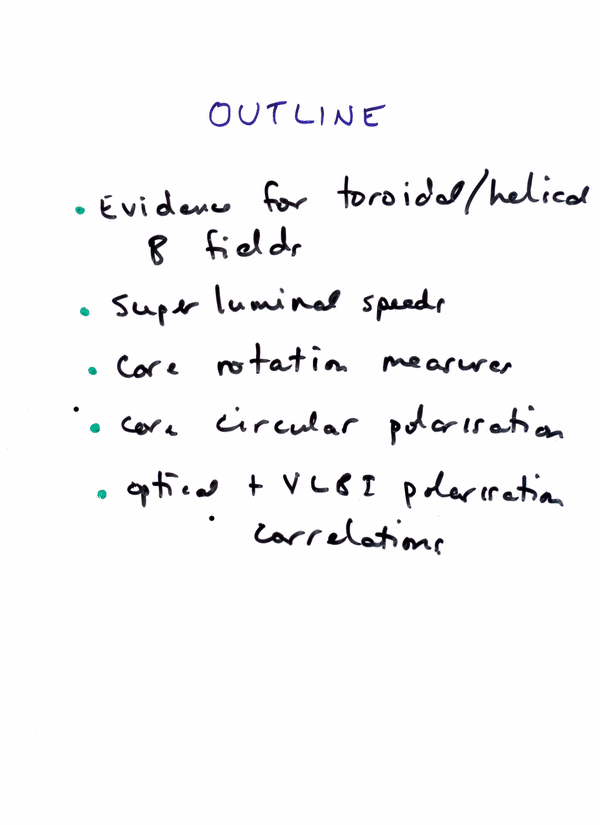 OUTLINE
• Evidence for toroidal/helical
B fields
• Superluminal speeds
• Core rotation measures
• core circular polarisation
• optical + VLBI polarisation
correlations